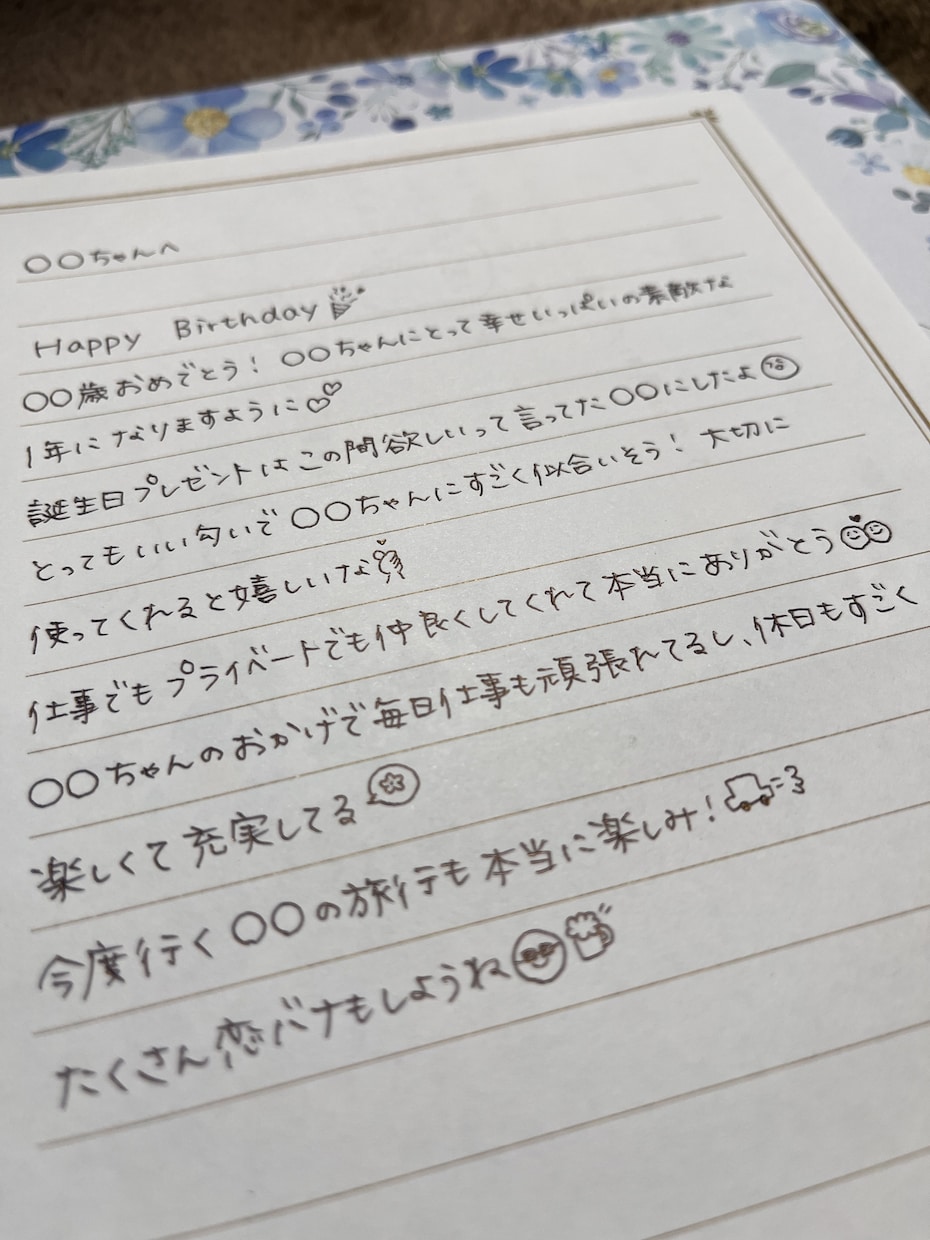 〇〇ちゃんへ
Happy Birthday
〇〇歳おめでとう！ 〇〇ちゃんにとって幸せいっぱいの素敵な
1年になりますように♡♡
誕生日プレゼントはこの間欲しいって言ってた〇〇にしたよ
とってもいい匂いで〇〇ちゃんにすごく似合いそう！ 大切に
使ってくれると嬉しいな
仕事でもプライベートでも仲良くしてくれて本当にありがとう
〇〇ちゃんのおかげで毎日仕事も頑張れてるし、休日もすごく
楽しくて充実してる
今度行く〇〇の旅行も本当に楽しみ！
たくさん恋バナもしようね